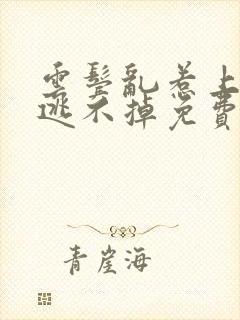 云鬓乱惹上
逃不掉免费
青崖海